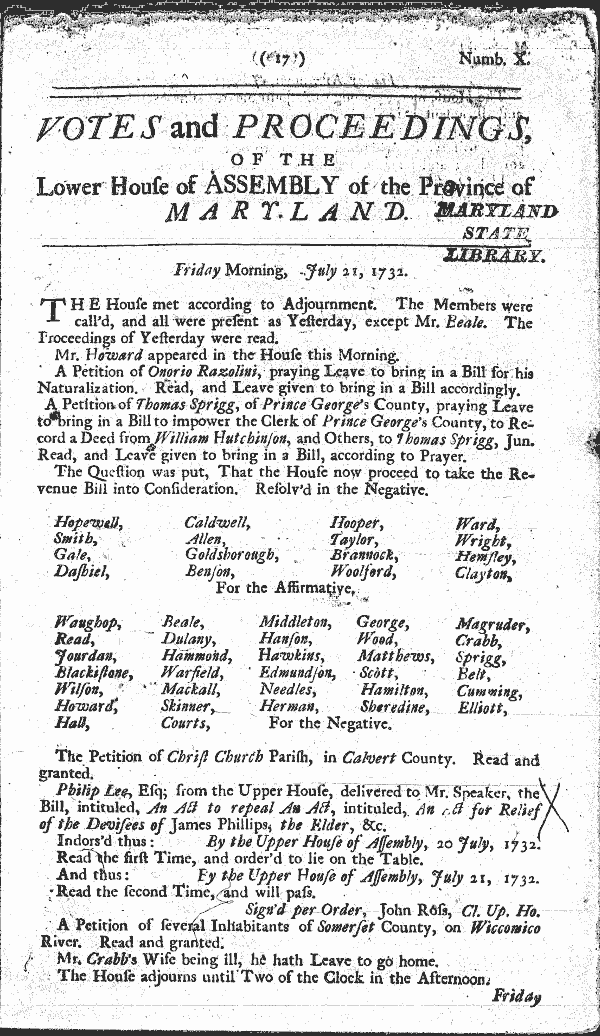 ((17)) Numb. X.
VOTES and PROCEEDINGS,
OF THE
Lower Houſe of ASSEMBLY of the Province of
MARYLAND.
MARYLAND
STATE
LIBRARY.
Friday Morning, July 21, 1732.
THE Houſe met according to Adjournment. The Members were
call'd, and all were preſent as Yeſterday, except Mr. Beale. The
Proceedings of Yeſterday were read.
Mr. Howard appeared in the Houſe this Morning.
A Petition of Onorio Razolini, praying Leave to bring in a Bill for his
Naturalization. Read, and Leave given to bring in a Bill accordingly.
A Petition of Thomas Sprigg, of Prince George's County, praying Leave
to bring in a Bill to impower the Clerk of Prince George's County, to Re-
cord a Deed from William Hutchinſon, and Others, to Thomas Sprigg, Jun.
Read, and Leave given to bring in a Bill, according to Prayer.
The Queſtion was put, That the Houſe now proceed to take the Re-
venue Bill into Conſideration. Reſolv'd in the Negative.
Hopewell, Caldwell, Hooper, Ward,
Smith, Allen, Taylor, Wright,
Gale, Goldsborough, Brannock, Hemſley,
Daſhiel, Benſon, Woolford, Clayton,
For the Affirmative.
Waughop, Beale, Middleton, George, Magruder,
Read, Dulany, Hanſon, Wood, Crabb,
Jourdan, Hammond, Hawkins, Matthews, Sprigg,
Blackiſtone, Warfield, Edmundſon, Scott, Belt,
Wilſon, Mackall, Needles, Hamilton, Cumming,
Howard, Skinner, Herman, Sheredine, Elliott,
Hall, Courts, For the Negative.
The Petition of Chriſt Church Pariſh, in Calvert County. Read and
granted.
Philip Lee, Eſq; from the Upper Houſe, delivered to Mr. Speaker, the
Bill, intituled, An Act to repeal An Act, intituled, An Act for Relief
of the Deviſees of James Phillips, the Elder, &c.
Indors'd thus: By the Upper Houſe of Aſſembly, 20 July, 1732.
Read the firſt Time, and order'd to lie on the Table.
And thus: By the Upper Houſe of Aſſembly, July 21, 1732.
Read the ſecond Time, and will paſs.
Sign'd per Order, John Roſs, Cl. Up. Ho.
A Petition of ſeveral Inhabitants of Somerſet County, on Wiccomico
River. Read and granted.
Mr. Crabb's Wife being ill, he hath Leave to go home.
The Houſe adjourns until Two of the Clock in the Afternoon.
Friday